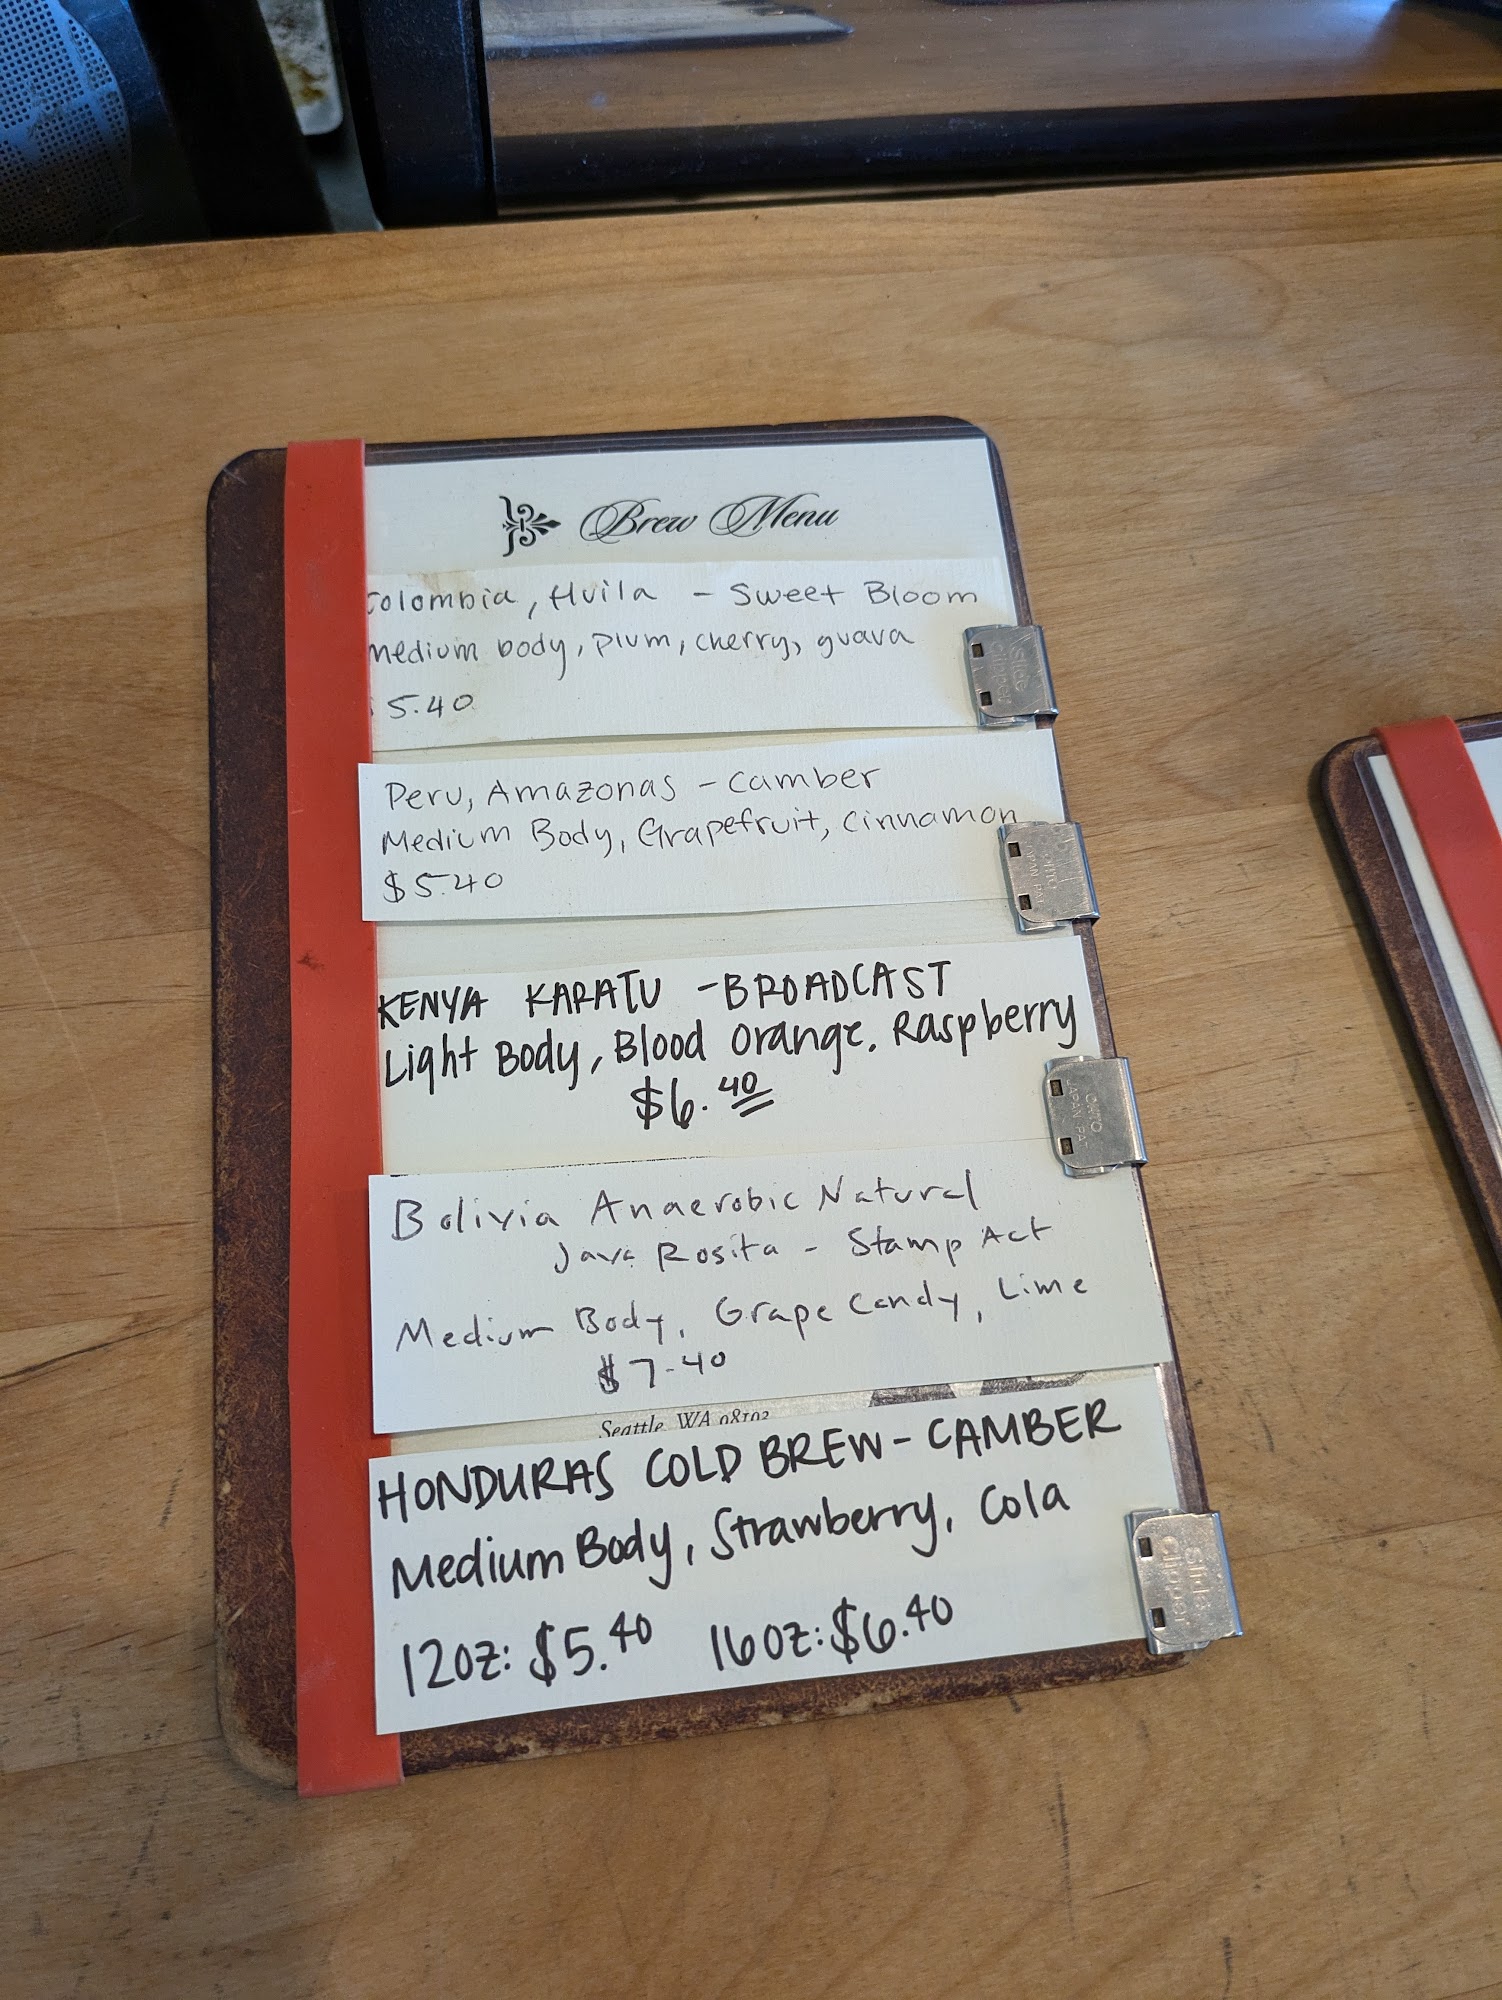 Brew Menu
Colombia, Huila - Sweet Bloom
medium body, plum, cherry, guava
5.40
Peru, Amazonas - Camber
Medium Body, Grapefruit, Cinnamon
$5.40
KENYA KARATU - BROADCAST
Light Body, Blood Orange, Raspberry
$6.40
Bolivia Anaerobic Natural
Java Rosita - Stamp Act
Medium Body, Grape Candy, Lime
$7.40
Seattle, WA 98102
HONDURAS COLD BREW - CAMBER
Medium Body, Strawberry, Cola
12oz: $5.40 16oz: $6.40
Slide
Clipper
OHTO
JAPAN PAT
OHTO
JAPAN PAT
Slide
Clipper